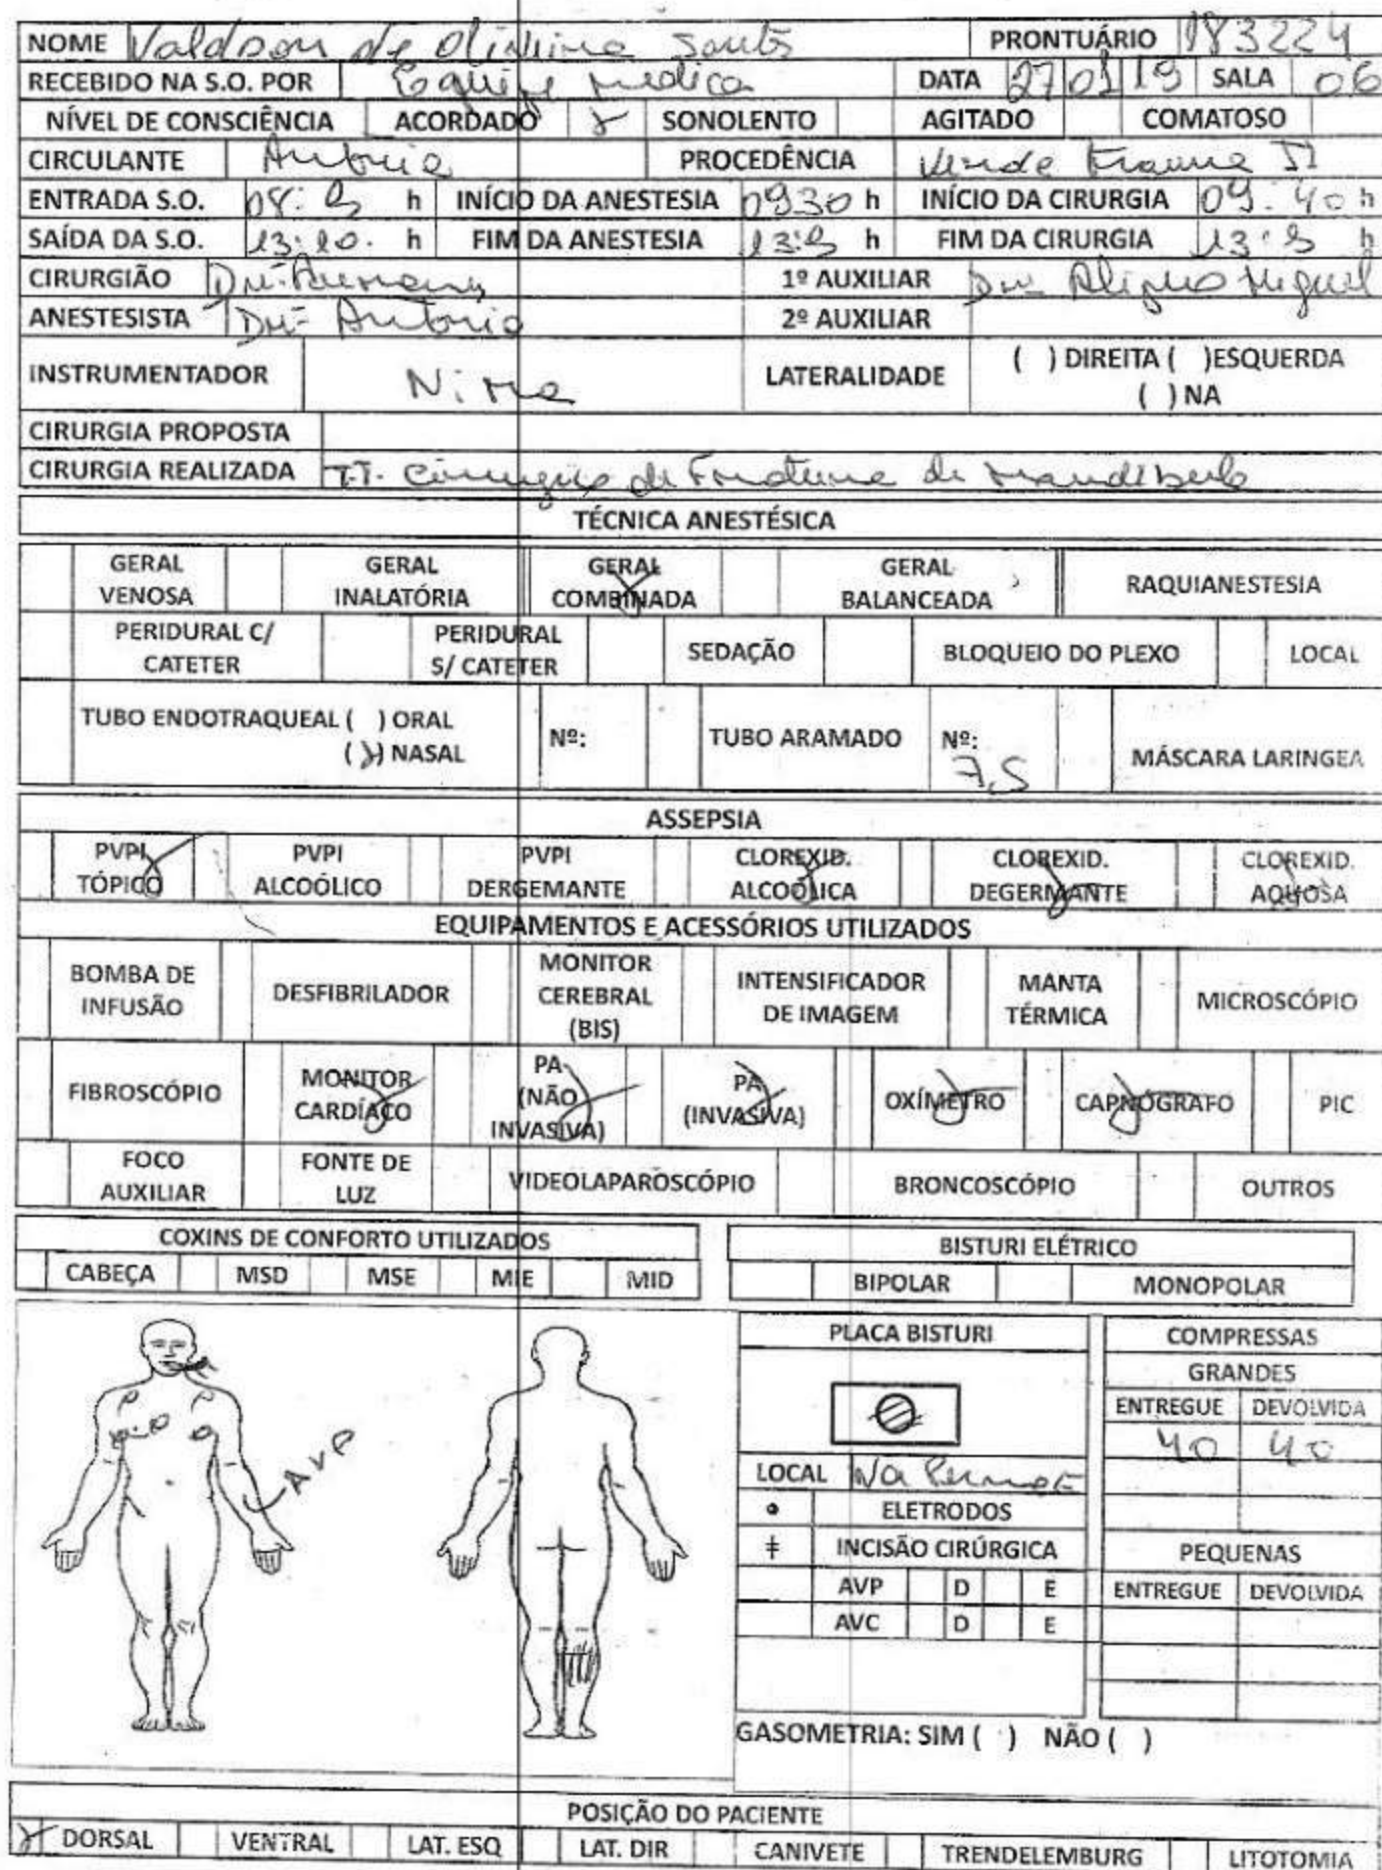 NOME Valdson de Oliveira Santos PRONTUÁRIO 183224
RECEBIDO NA S.O. POR Equipe medica DATA 27 01 19 SALA 06
NÍVEL DE CONSCIÊNCIA ACORDADO X SONOLENTO AGITADO COMATOSO
CIRCULANTE Antonia PROCEDÊNCIA Verde Trauma II
ENTRADA S.O. h INÍCIO DA ANESTESIA 0930 h INÍCIO DA CIRURGIA 09:40 h
SAÍDA DA S.O. 13:20. h FIM DA ANESTESIA h FIM DA CIRURGIA h
CIRURGIÃO 1º AUXILIAR Miguel
ANESTESISTA Drº Antonio 2º AUXILIAR
INSTRUMENTADOR LATERALIDADE ( ) DIREITA ( )ESQUERDA
( ) NA
CIRURGIA PROPOSTA
CIRURGIA REALIZADA T.T. Cirurgico de Fratura de mandibula
TÉCNICA ANESTÉSICA
GERAL VENOSA GERAL INALATÓRIA GERAL COMBINADA X GERAL BALANCEADA RAQUIANESTESIA
PERIDURAL C/ CATETER PERIDURAL S/ CATETER SEDAÇÃO BLOQUEIO DO PLEXO LOCAL
TUBO ENDOTRAQUEAL ( ) ORAL
(X) NASAL Nº: TUBO ARAMADO Nº: 7,5 MÁSCARA LARINGEA
ASSEPSIA
PVPI TÓPICO PVPI ALCOÓLICO PVPI DERGEMANTE CLOREXID. ALCOÓLICA CLOREXID. DEGERMANTE CLOREXID. AQUOSA
EQUIPAMENTOS E ACESSÓRIOS UTILIZADOS
BOMBA DE INFUSÃO DESFIBRILADOR MONITOR CEREBRAL (BIS) INTENSIFICADOR DE IMAGEM MANTA TÉRMICA MICROSCÓPIO
FIBROSCÓPIO MONITOR CARDÍACO PA (NÃO INVASIVA) PA (INVASIVA) OXÍMETRO CAPNÓGRAFO PIC
FOCO AUXILIAR FONTE DE LUZ VIDEOLAPAROSCÓPIO BRONCOSCÓPIO OUTROS
COXINS DE CONFORTO UTILIZADOS
CABEÇA MSD MSE MIE MID
BISTURI ELÉTRICO
BIPOLAR MONOPOLAR
AVP
PLACA BISTURI
LOCAL Na
ELETRODOS
INCISÃO CIRÚRGICA
AVP D E
AVC D E
COMPRESSAS
GRANDES
ENTREGUE DEVOLVIDA
40 40
PEQUENAS
ENTREGUE DEVOLVIDA
GASOMETRIA: SIM ( ) NÃO ( )
POSIÇÃO DO PACIENTE
X DORSAL VENTRAL LAT. ESQ LAT. DIR CANIVETE TRENDELEMBURG LITOTOMIA